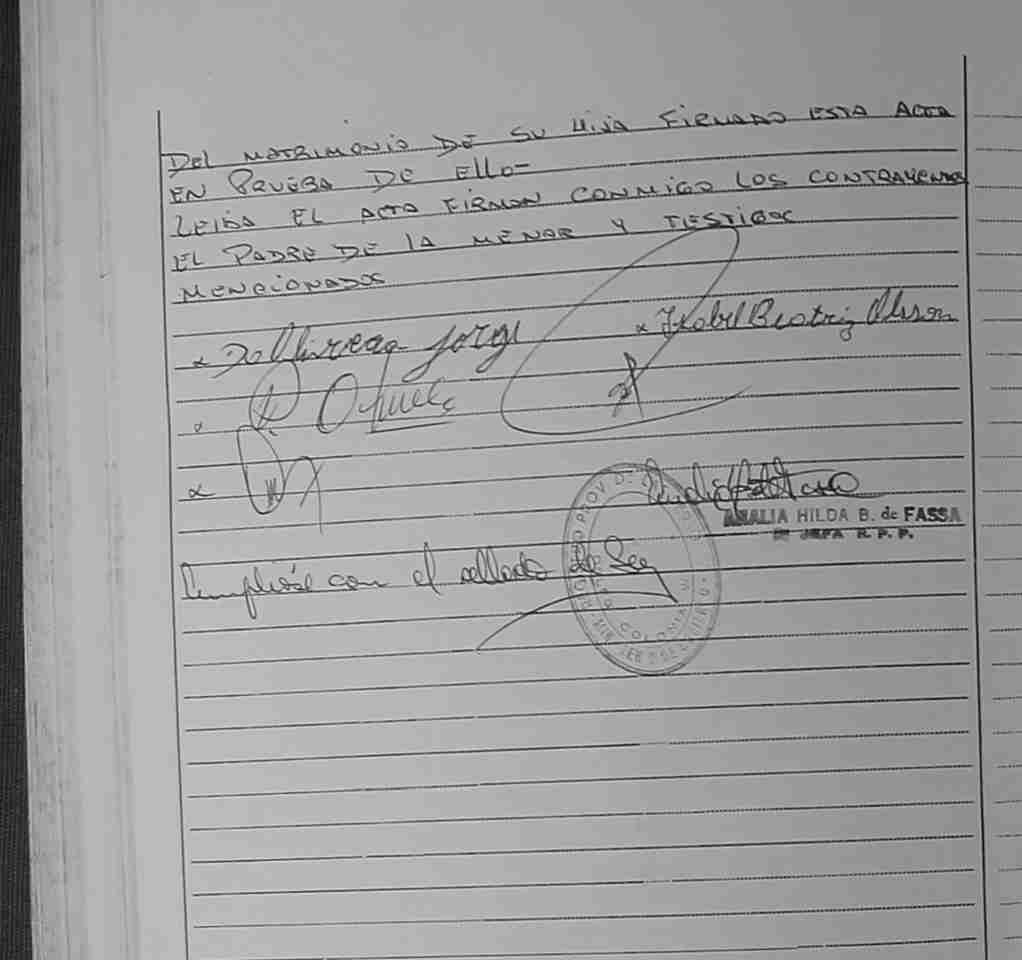 DEL MATRIMONIO DE SU HIJA FIRMADO ESTA ACTA
EN PRUEBA DE ELLO-
LEIDA EL ACTA FIRMAN CONMIGO LOS CONTRAYENTES
EL PADRE DE LA MENOR Y TESTIGOS
MENCIONADOS
x Jorge x Isabel Beatriz
x
x
AMALIA HILDA B. de FASSA
JEFA R. P. P.
Cumplióse con el sellado de Ley
PROV D
COLONIA